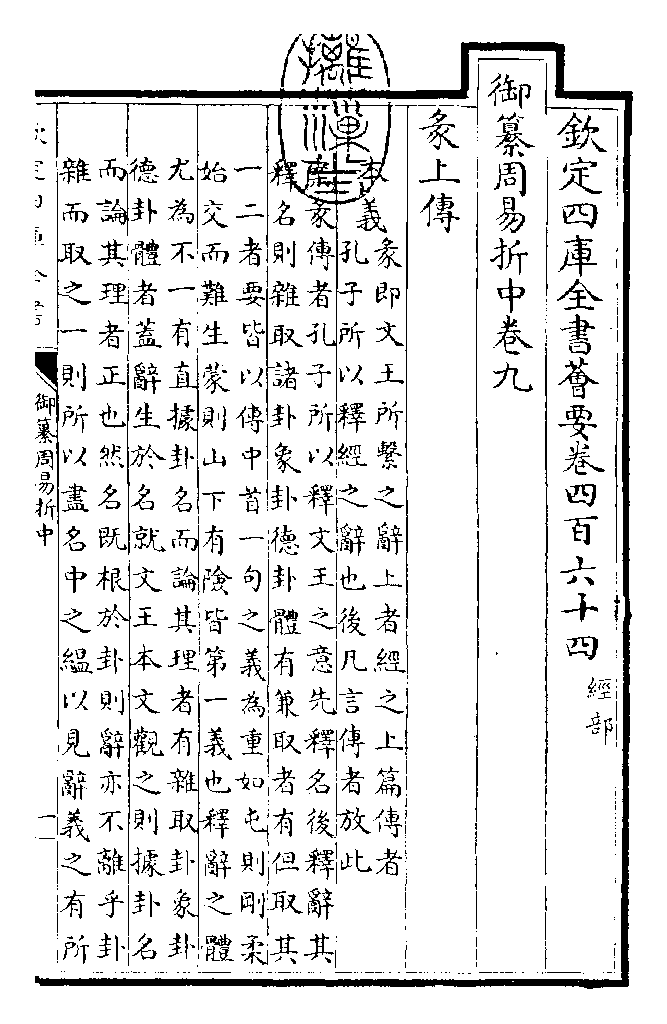 欽定四庫全書薈要卷四百六十四 經部
御纂周易折中卷九
彖上傳
本義 彖即文王所繫之辭上者經之上篇傳者
孔子所以釋經之辭也後凡言傳者放此
案彖傳者孔子所以釋文王之意先釋名後釋辭其
釋名則雜取諸卦象卦德卦體有兼取者有但取其
一二者要皆以傳中首一句之義為重如屯則剛柔
始交而難生蒙則山下有險皆第一義也釋辭之體
尤為不一有直據卦名而論其理者有雜取卦象卦
德卦體者蓋辭生於名就文王本文觀之則據卦名
而論其理者正也然名既根於卦則辭亦不離乎卦
雜而取之一則所以盡名中之緼以見辭義之有所
欽定四庫全書
御纂周易折中
一